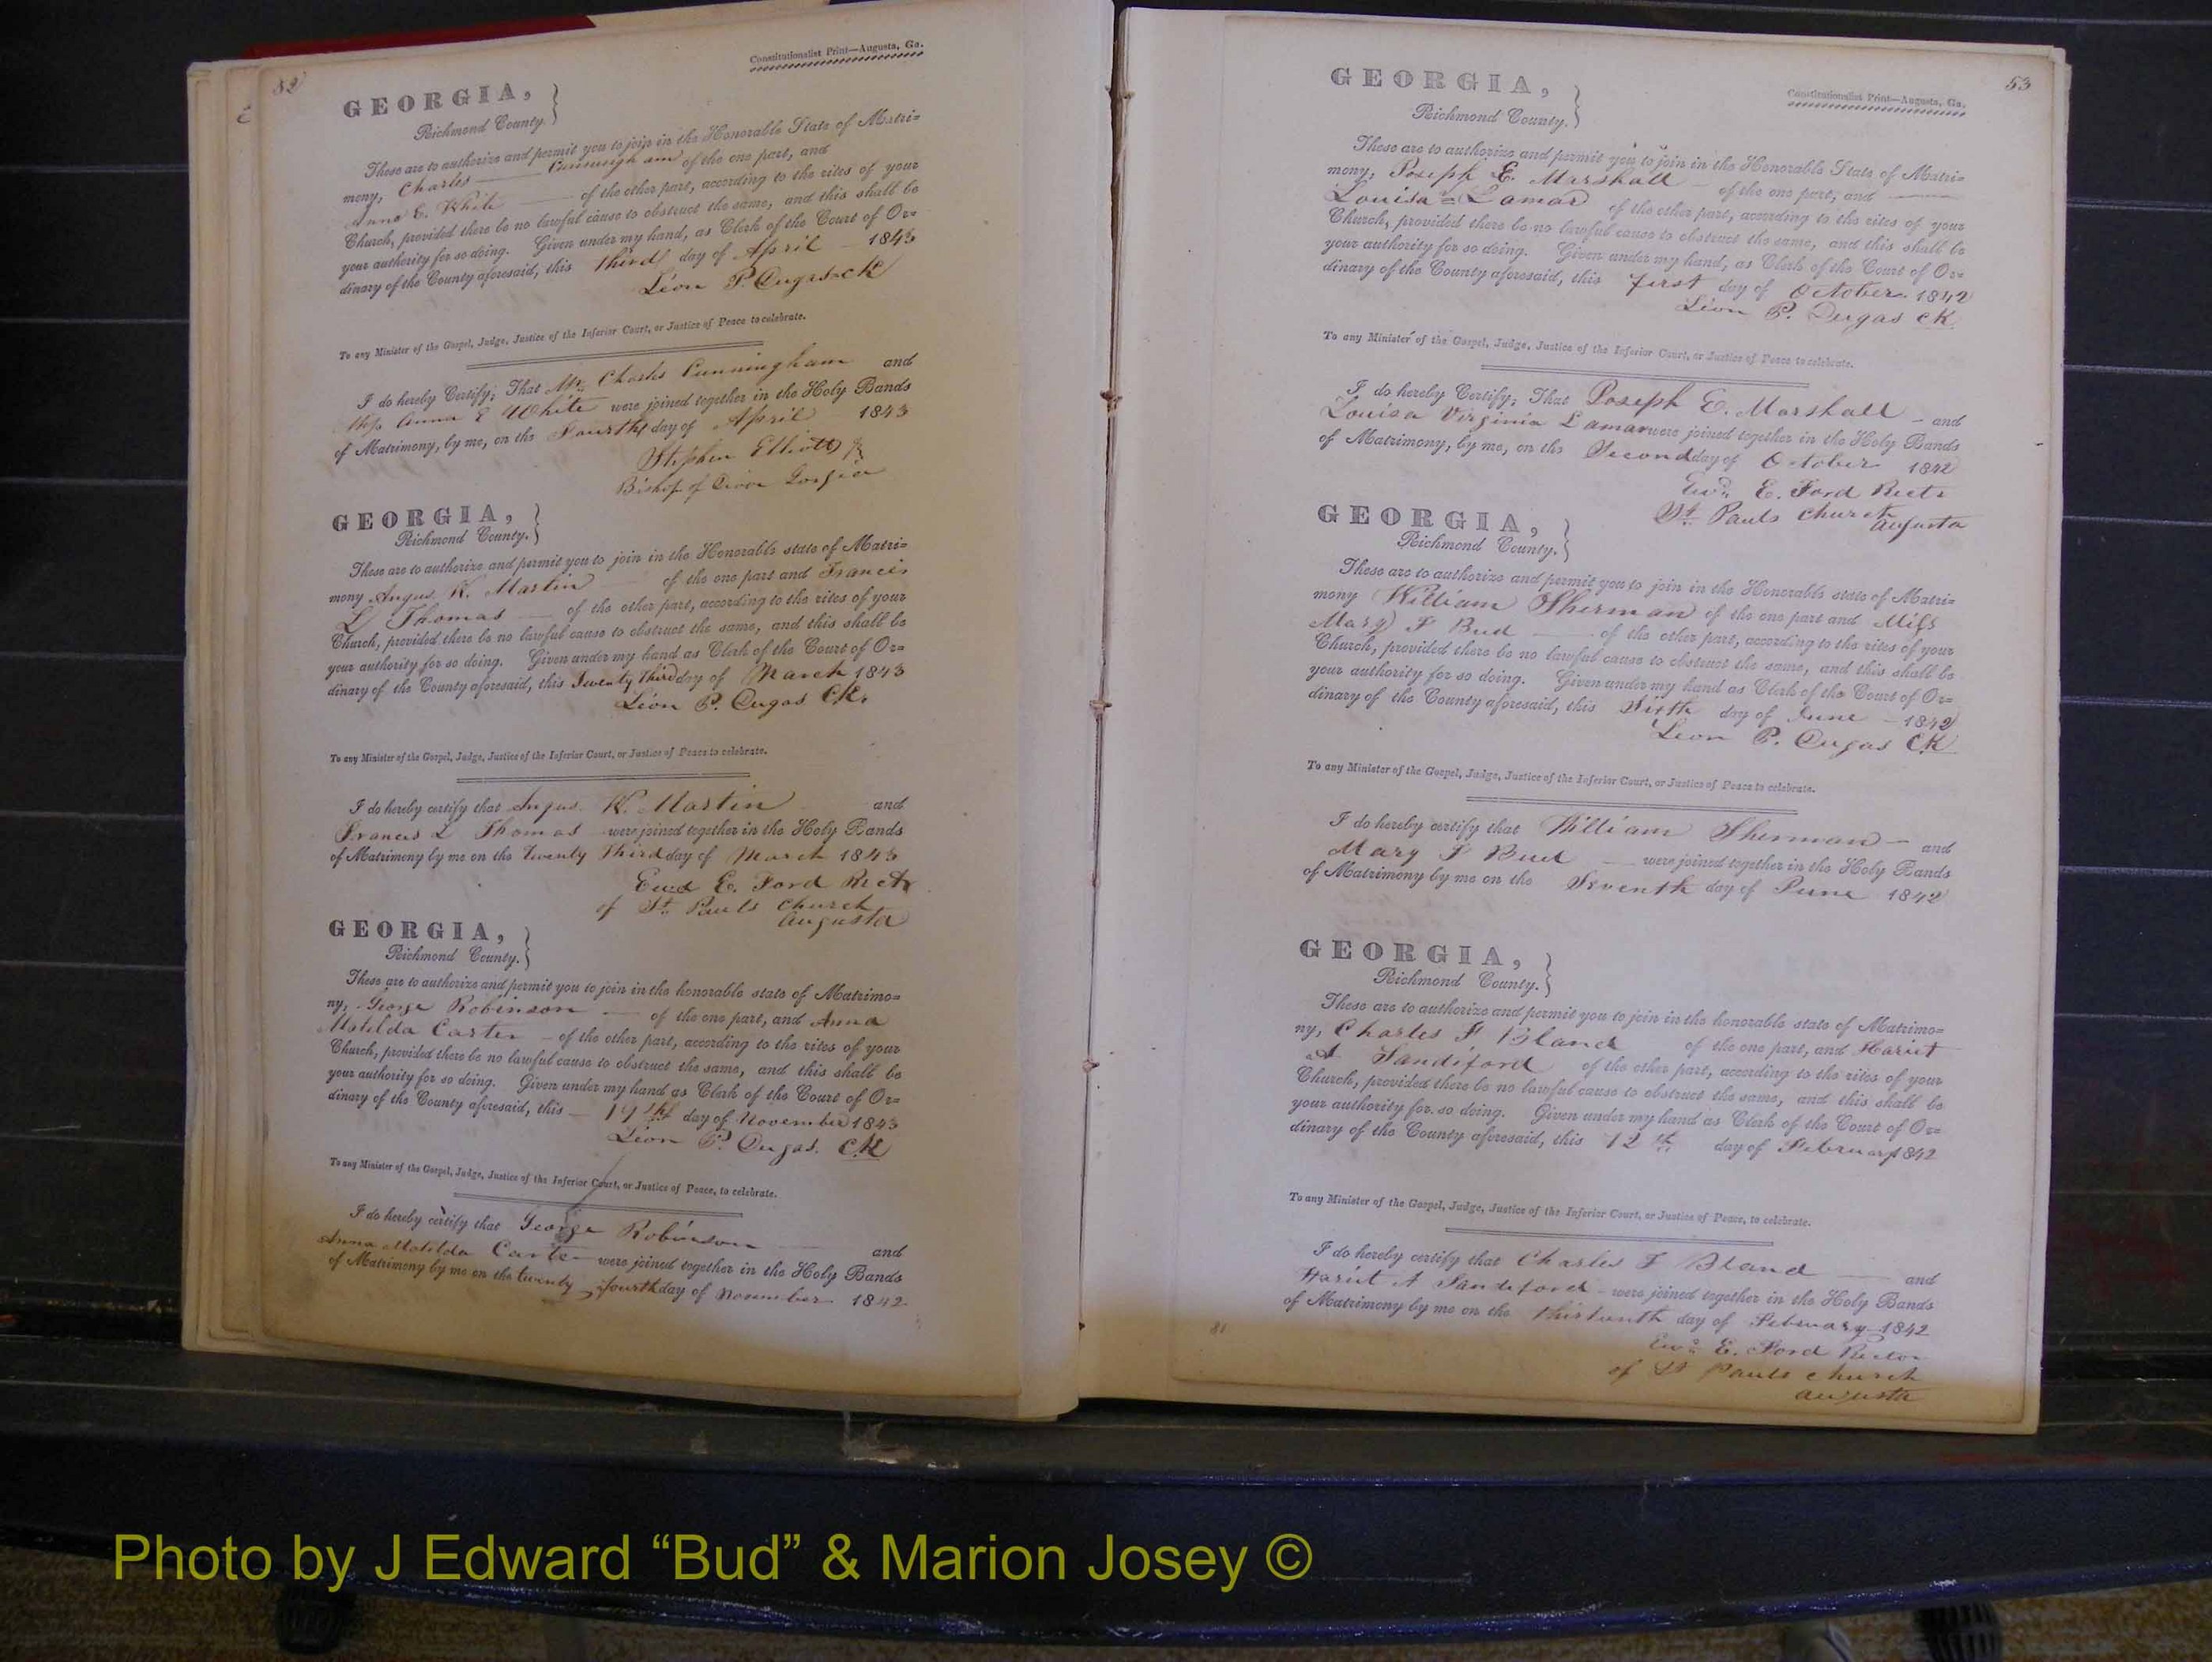 82
Constitutionalist Print—Augusta, Ga.
GEORGIA,
Richmond County.
These are to authorize and permit you to join in the Honorable State of Matri=
mony, Charles —— Cunningham of the one part, and
Anna E. White —— of the other part, according to the rites of your
Church, provided there be no lawful cause to obstruct the same, and this shall be
your authority for so doing. Given under my hand, as Clerk of the Court of Or=
dinary of the County aforesaid, this third day of April — 1843
Léon P. Dugas ck
To any Minister of the Gospel, Judge, Justice of the Inferior Court, or Justice of Peace to celebrate.
I do hereby Certify; That Mr. Charles Cunningham and
Miss Anna E White were joined together in the Holy Bands
of Matrimony, by me, on the Fourth day of April 1843
Stephen Elliott Jr
Bishop of Georgia
GEORGIA,
Richmond County.
These are to authorize and permit you to join in the Honorable state of Matri=
mony Angus K. Martin of the one part and Francis
L Thomas — of the other part, according to the rites of your
Church, provided there be no lawful cause to obstruct the same, and this shall be
your authority for so doing. Given under my hand as Clerk of the Court of Or=
dinary of the County aforesaid, this Twenty Third day of March 1843
Léon P. Dugas CK.
To any Minister of the Gospel, Judge, Justice of the Inferior Court, or Justice of Peace to celebrate.
I do hereby certify that Angus K. Martin and
Francis L Thomas were joined together in the Holy Bands
of Matrimony by me on the Twenty Third day of March 1843
Ewd E. Ford Rectr
of St. Pauls Church
Augusta
GEORGIA,
Richmond County.
These are to authorize and permit you to join in the honorable state of Matrimo=
ny, George Robinson — of the one part, and Anna
Matilda Carter — of the other part, according to the rites of your
Church, provided there be no lawful cause to obstruct the same, and this shall be
your authority for so doing. Given under my hand as Clerk of the Court of Or=
dinary of the County aforesaid, this — 19th day of November 1843
Léon P. Dugas. C.K
To any Minister of the Gospel, Judge, Justice of the Inferior Court, or Justice of Peace, to celebrate.
I do hereby certify that George Robinson —— and
Anna Matilda Carter were joined together in the Holy Bands
of Matrimony by me on the twenty fourth day of November 1842
53
Constitutionalist Print—Augusta, Ga.
GEORGIA,
Richmond County.
These are to authorize and permit you to join in the Honorable State of Matri=
mony, Joseph E. Marshall — of the one part, and ——
Louisa = Lamar of the other part, according to the rites of your
Church, provided there be no lawful cause to obstruct the same, and this shall be
your authority for so doing. Given under my hand, as Clerk of the Court of Or=
dinary of the County aforesaid, this first day of October 1842
Léon P. Dugas CK.
To any Minister of the Gospel, Judge, Justice of the Inferior Court, or Justice of Peace to celebrate.
I do hereby Certify; That Joseph E. Marshall — and
Louisa Virginia Lamar were joined together in the Holy Bands
of Matrimony, by me, on the Second day of October 1842
Ewd. E. Ford Rectr
St. Pauls Church
Augusta
GEORGIA,
Richmond County.
These are to authorize and permit you to join in the Honorable state of Matri=
mony William Sherman of the one part and Miss
Mary F Bud —— of the other part, according to the rites of your
Church, provided there be no lawful cause to obstruct the same, and this shall be
your authority for so doing. Given under my hand as Clerk of the Court of Or=
dinary of the County aforesaid, this Sixth day of June — 1842
Léon P. Dugas C.K
To any Minister of the Gospel, Judge, Justice of the Inferior Court, or Justice of Peace to celebrate.
I do hereby certify that William Sherman — and
Mary F Bud —— were joined together in the Holy Bands
of Matrimony by me on the Seventh day of June 1842
GEORGIA,
Richmond County.
These are to authorize and permit you to join in the honorable state of Matrimo=
ny, Charles F Bland of the one part, and Hariet
A Sandiford of the other part, according to the rites of your
Church, provided there be no lawful cause to obstruct the same, and this shall be
your authority for so doing. Given under my hand as Clerk of the Court of Or=
dinary of the County aforesaid, this 12th day of February 1842
To any Minister of the Gospel, Judge, Justice of the Inferior Court, or Justice of Peace, to celebrate.
I do hereby certify that Charles F Bland —— and
Hariet A Sandiford — were joined together in the Holy Bands
of Matrimony by me on the thirteenth day of February 1842
Ewd. E. Ford Rector
of St Pauls Church
Augusta
81
Photo by J Edward “Bud” & Marion Josey ©